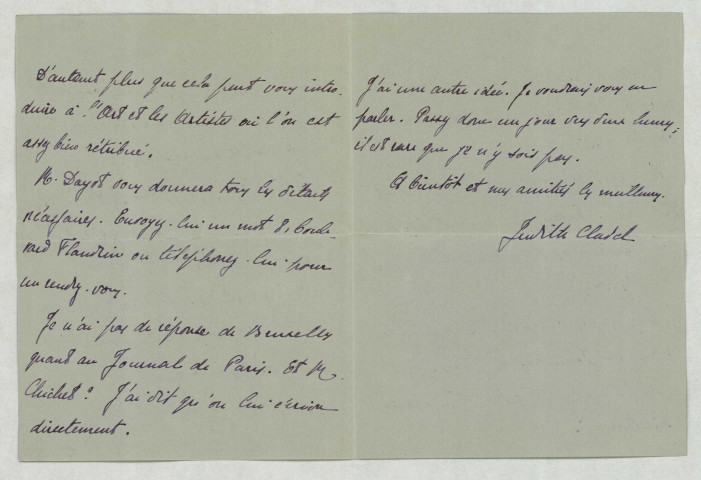 D'autant plus que cela peut vous intro-
duire à l'Art et les Artistes où l'on est
assez bien rétribué.
M. Dayot vous donnera tous les détails
nécessaires. Envoyez-lui un mot 8, boule-
vard Flandrin ou téléphonez-lui pour
un rendez-vous.
Je n'ai pas de réponse de Bruxelles
quant au Journal de Paris. Et M.
Chichet? J'ai dit qu'on lui écrive
directement.
J'ai une autre idée. Je voudrais vous en
parler. Passez donc un jour vers 6 heures;
il est rare que je n'y sois pas.
A bientôt et mes amitiés les meilleures.
Judith Cladel